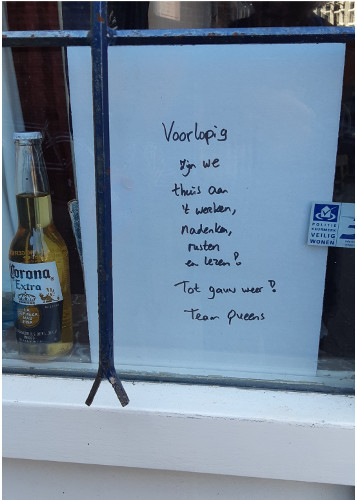 Voorlopig
zijn we
thuis aan
't werken,
nadenken,
rusten
en lezen!
Tot gauw weer!
Team Queens
Corona
Extra
POLITIE
KEURMERK
VEILIG
WONEN